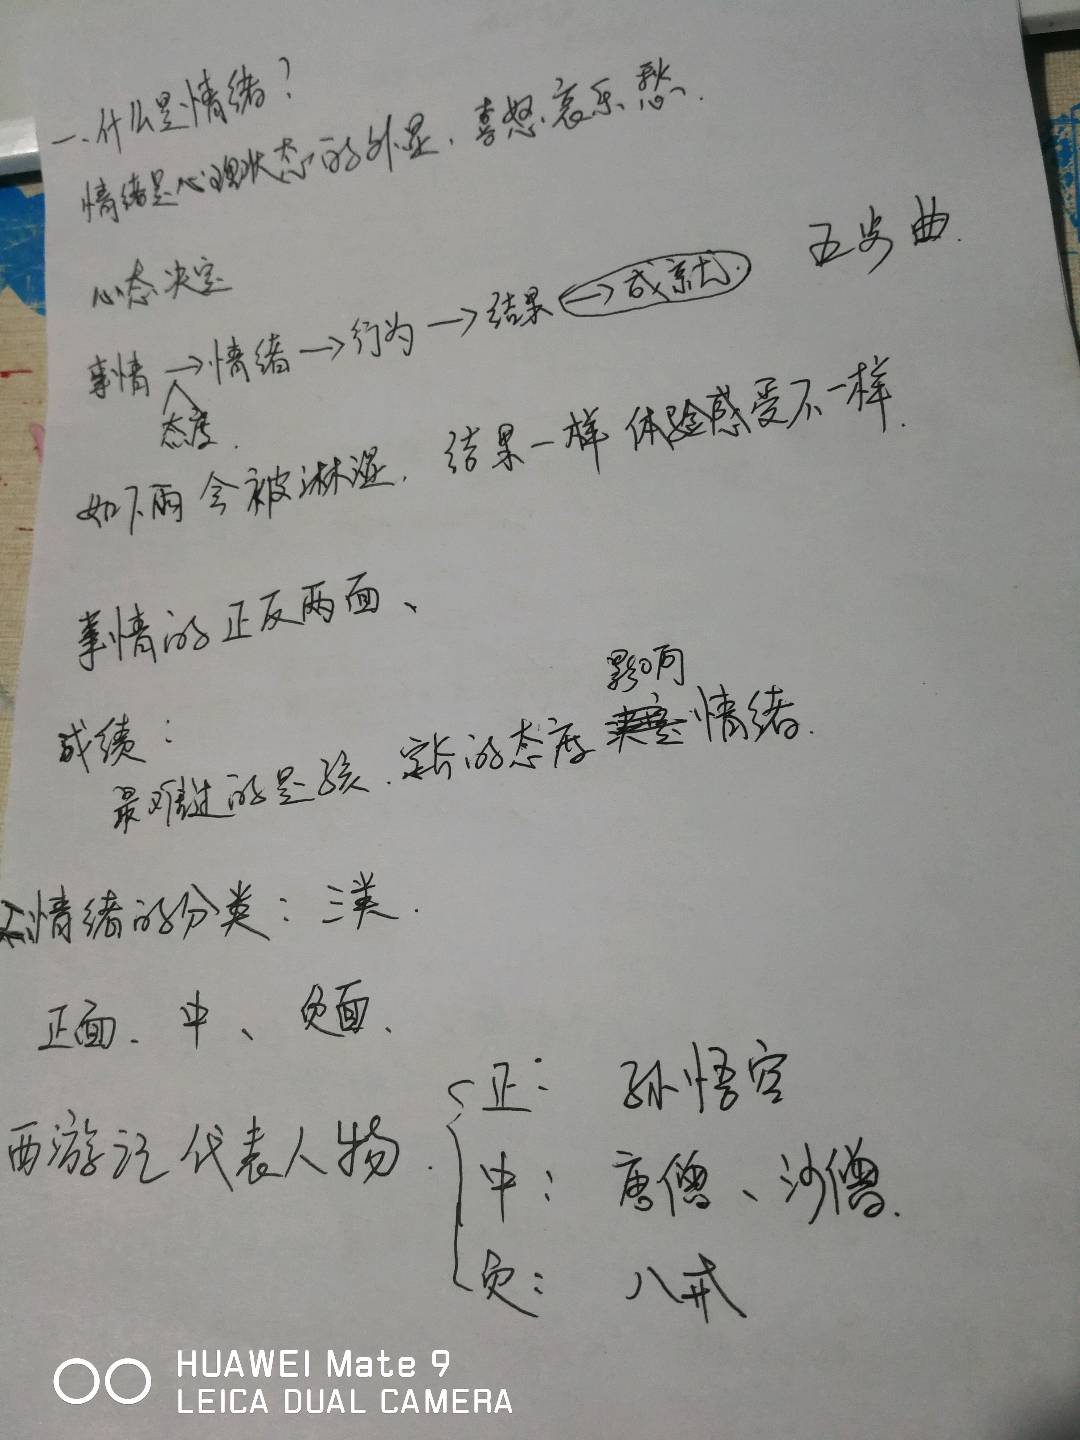 一、什么是情绪？
情绪是心理状态的外显，喜怒哀乐愁.
心态决定
五步曲.
事情→情绪→行为→结果→成就.
态度.
如下雨会被淋湿. 结果一样 体验感受不一样.
事情的正反两面、
成绩：
影响
最难过的是孩. 家长的态度 情绪.
情绪的分类：三类.
正面、中、负面、
西游记代表人物.
正：孙悟空
中：唐僧、沙僧.
负：八戒
HUAWEI Mate 9
LEICA DUAL CAMERA